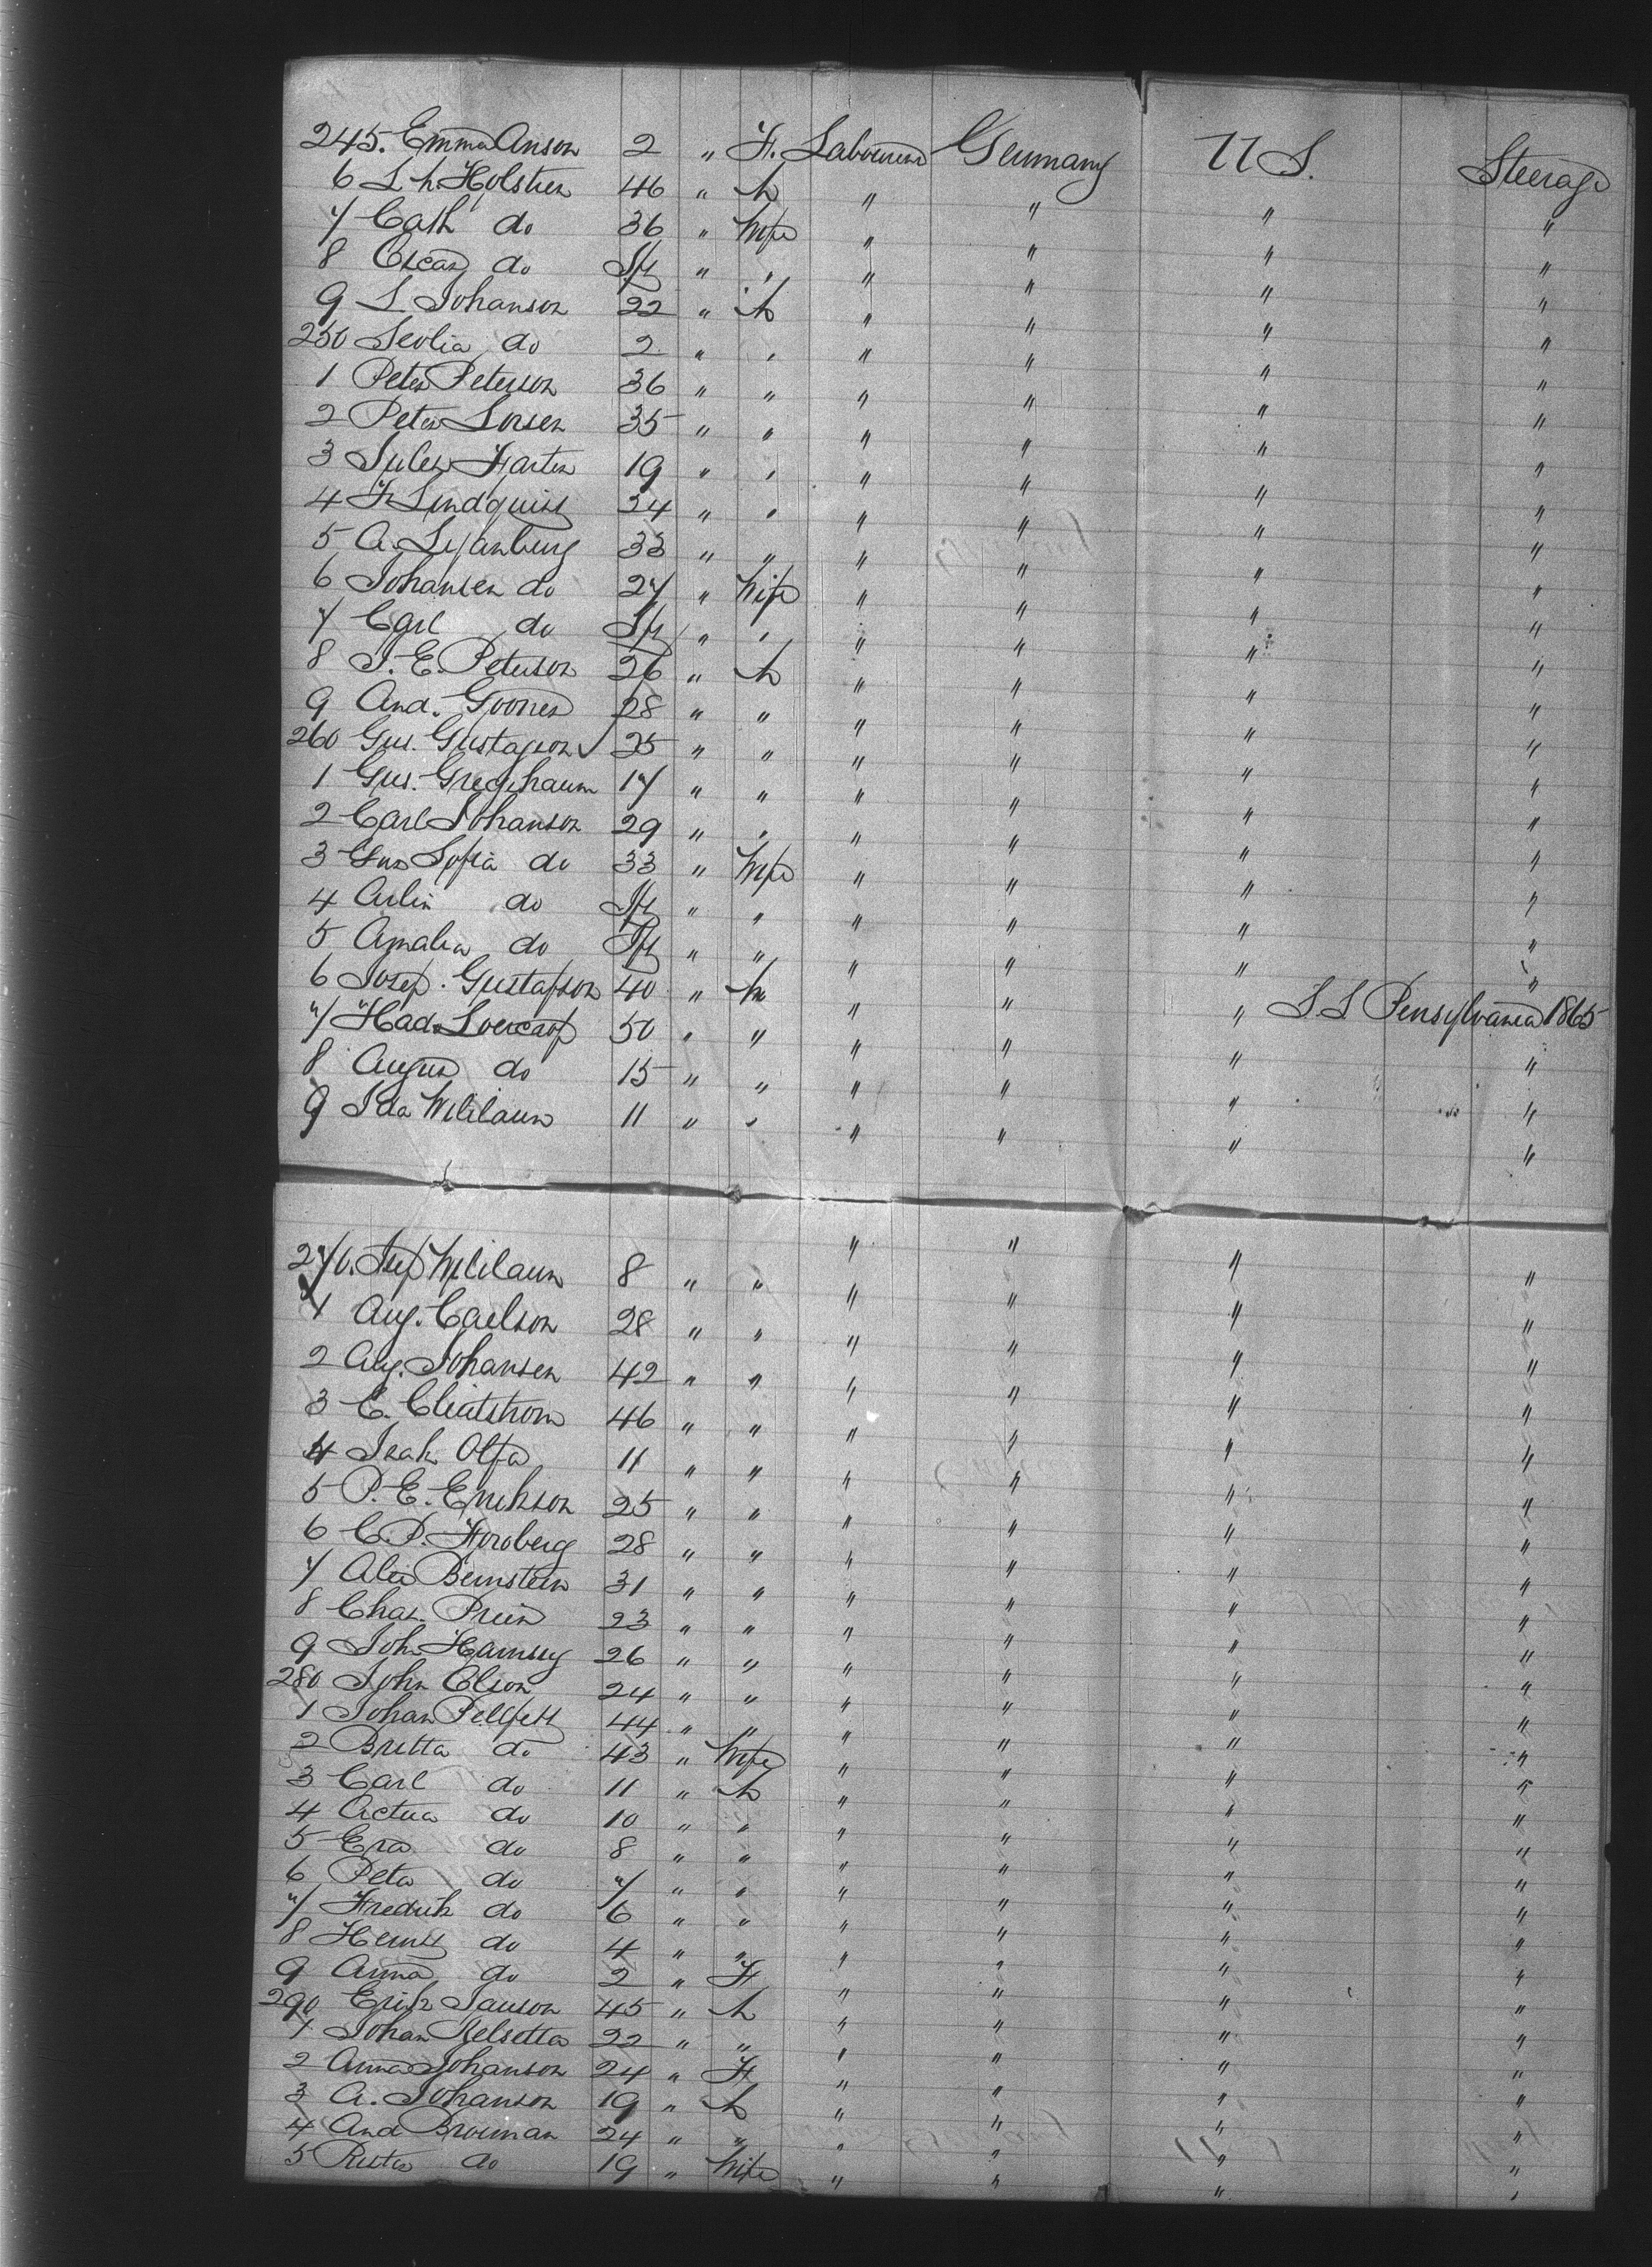 245. Emma Anson 2 " F. Labourer Germany U S. Steerage
6 L. h. Holsten 46 " h " " " "
7 Cath do 36 " Wife " " " "
8 Oscar do Inf " " " " " "
9 L. Johanson 22 " h " " " "
250 do 2 " " " " " "
1 Peter Peterson 36 " " " " " "
2 Peter Lorsen 35 " " " " " "
3 Jules Harten 19 " " " " " "
4 F Lindquist 34 " " " " " "
5 A. 33 " " " " " "
6 Johansen do 27 " Wife " " " "
7 Carl do Inf " " " " " "
8 J. E. Peterson 26 " h " " " "
9 And. 28 " " " " " "
260 Gus. Gustafson 25 " " " " " "
1 Gus. 17 " " " " " "
2 Carl Johanson 29 " " " " " "
3 Sofia do 33 " Wife " " " "
4 Arlin do Inf " " " " " "
5 Amalia do Inf " " " " " "
6 Josef. Gustafson 40 " h " " " "
7 50 " " " " " S. S Pensylvania 1865
8 August do 15 " " " " " "
9 Ida Wililaum 11 " " " " " "
270. Wililaum 8 " " " " " "
1 Aug. Carlson 28 " " " " " "
2 Aug. Johansen 42 " " " " " "
3 C. 46 " " " " " "
4 Isak Olfa 11 " " " " " "
5 P. E. Erikson 25 " " " " " "
6 C. P. Foroberg 28 " " " " " "
7 Alex Bernstein 31 " " " " " "
8 Chas. 23 " " " " " "
9 John 26 " " " " " "
280 John Olson 24 " " " " " "
1 Johan 44 " " " " " "
2 Britta do 43 " Wife " " " "
3 Carl do 11 " h " " " "
4 do 10 " " " " " "
5 Eva do 8 " " " " " "
6 Peter do 7 " " " " " "
7 Fredrik do 6 " " " " " "
8 do 4 " " " " " "
9 Anna do 2 " F " " " "
290 Erik Janson 45 " h " " " "
1 Johan 22 " " " " " "
2 Anna Johanson 24 " F " " " "
3 A. Johanson 19 " h " " " "
4 And Brouman 24 " " " " " "
5 do 19 " Wife " " " "